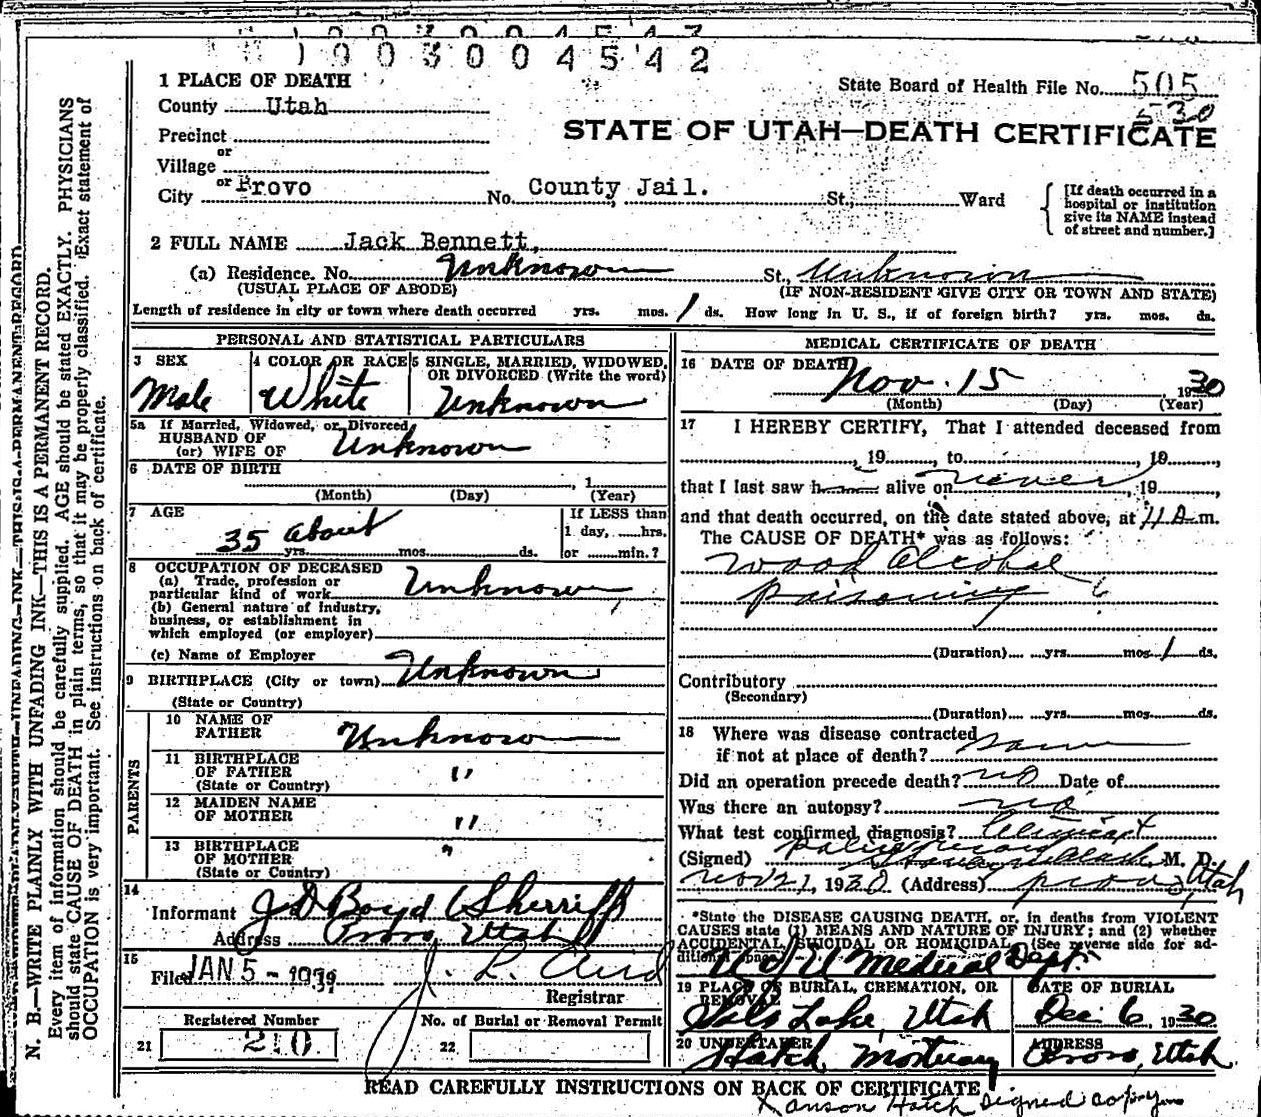 1003004542
1 PLACE OF DEATH
State Board of Health File No. 505
530
County Utah
STATE OF UTAH—DEATH CERTIFICATE
Precinct
or
Village
or
City Provo No. County Jail. St., Ward
[If death occurred in a
hospital or institution
give its NAME instead
of street and number.]
2 FULL NAME Jack Bennett,
(a) Residence. No. Unknown St., Unknown
(USUAL PLACE OF ABODE) (IF NON-RESIDENT GIVE CITY OR TOWN AND STATE)
Length of residence in city or town where death occurred yrs. mos. 1 ds. How long in U. S., if of foreign birth? yrs. mos. ds.
PERSONAL AND STATISTICAL PARTICULARS
3 SEX
Male
4 COLOR OR RACE
White
5 SINGLE, MARRIED, WIDOWED,
OR DIVORCED (Write the word)
Unknown
5a If Married, Widowed, or Divorced
HUSBAND OF
(or) WIFE OF Unknown
6 DATE OF BIRTH
, 1
(Month) (Day) (Year)
7 AGE
35 about
yrs. mos. ds.
If LESS than
1 day, hrs.
or min.?
8 OCCUPATION OF DECEASED
(a) Trade, profession or
particular kind of work Unknown
(b) General nature of Industry,
business, or establishment in
which employed (or employer)
(c) Name of Employer
9 BIRTHPLACE (City or town) Unknown
(State or Country)
PARENTS
10 NAME OF
FATHER Unknown
11 BIRTHPLACE
OF FATHER "
(State or Country)
12 MAIDEN NAME
OF MOTHER "
13 BIRTHPLACE
OF MOTHER "
(State or Country)
14
Informant J D Boyd Sherriff
Address Provo Utah
15
Filed JAN 5 - 1931
Registrar
Registered Number
21 210
No. of Burial or Removal Permit
22
MEDICAL CERTIFICATE OF DEATH
16 DATE OF DEATH Nov. 15 1930
(Month) (Day) (Year)
17 I HEREBY CERTIFY, That I attended deceased from
, 19 , to , 19 ,
that I last saw h alive on never , 19 ,
and that death occurred, on the date stated above, at 11 A m.
The CAUSE OF DEATH* was as follows:
Wood Alcohol
Poisoning ?
(Duration) yrs. mos. 1 ds.
Contributory
(Secondary)
(Duration) yrs. mos. ds.
18 Where was disease contracted
if not at place of death? Same
Did an operation precede death? no Date of
Was there an autopsy? no
What test confirmed diagnosis? Clinical +
(Signed) M. D.
Nov 21, 1930 (Address) Provo, Utah
*State the DISEASE CAUSING DEATH, or, in deaths from VIOLENT
CAUSES state (1) MEANS AND NATURE OF INJURY; and (2) whether
ACCIDENTAL, SUICIDAL OR HOMICIDAL. (See reverse side for ad-
ditional space.)
U of U Medical Dept.
19 PLACE OF BURIAL, CREMATION, OR
REMOVAL
Salt Lake, Utah
DATE OF BURIAL
Dec. 6, 1930
20 UNDERTAKER
Hatch Mortuary
ADDRESS
Provo, Utah
READ CAREFULLY INSTRUCTIONS ON BACK OF CERTIFICATE
Anson Hatch signed copy
N. B.—WRITE PLAINLY WITH UNFADING INK—THIS IS A PERMANENT RECORD.
Every item of information should be carefully supplied. AGE should be stated EXACTLY. PHYSICIANS
should state CAUSE OF DEATH in plain terms, so that it may be properly classified. Exact statement of
OCCUPATION is very important. See instructions on back of certificate.